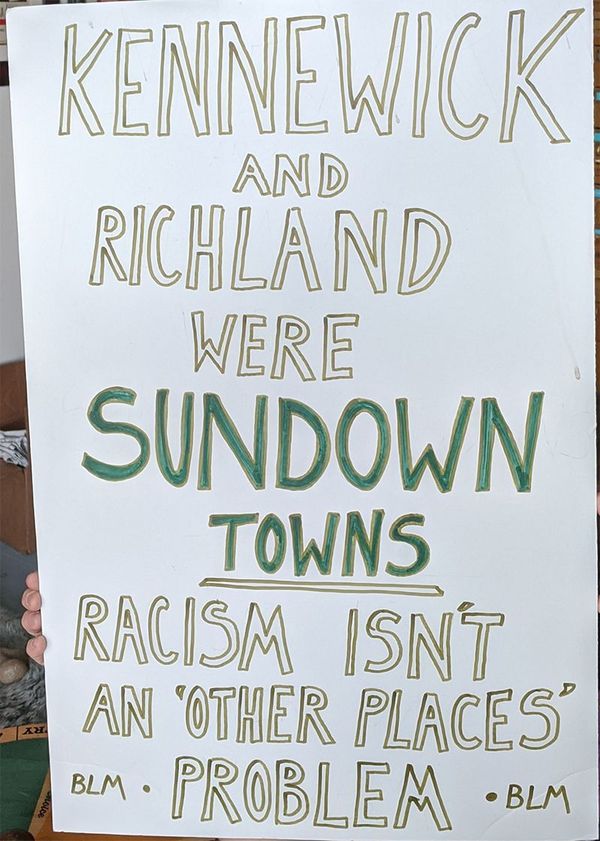 KENNEWICK
AND
RICHLAND
WERE
SUNDOWN
TOWNS
RACISM ISN'T
AN 'OTHER PLACES'
BLM • PROBLEM • BLM